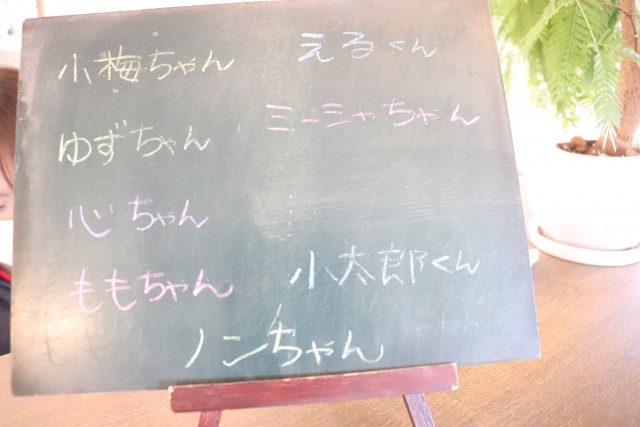 小梅ちゃん
ゆずちゃん
心ちゃん
ももちゃん
えるくん
ミーシャちゃん
小太郎くん
ノンちゃん